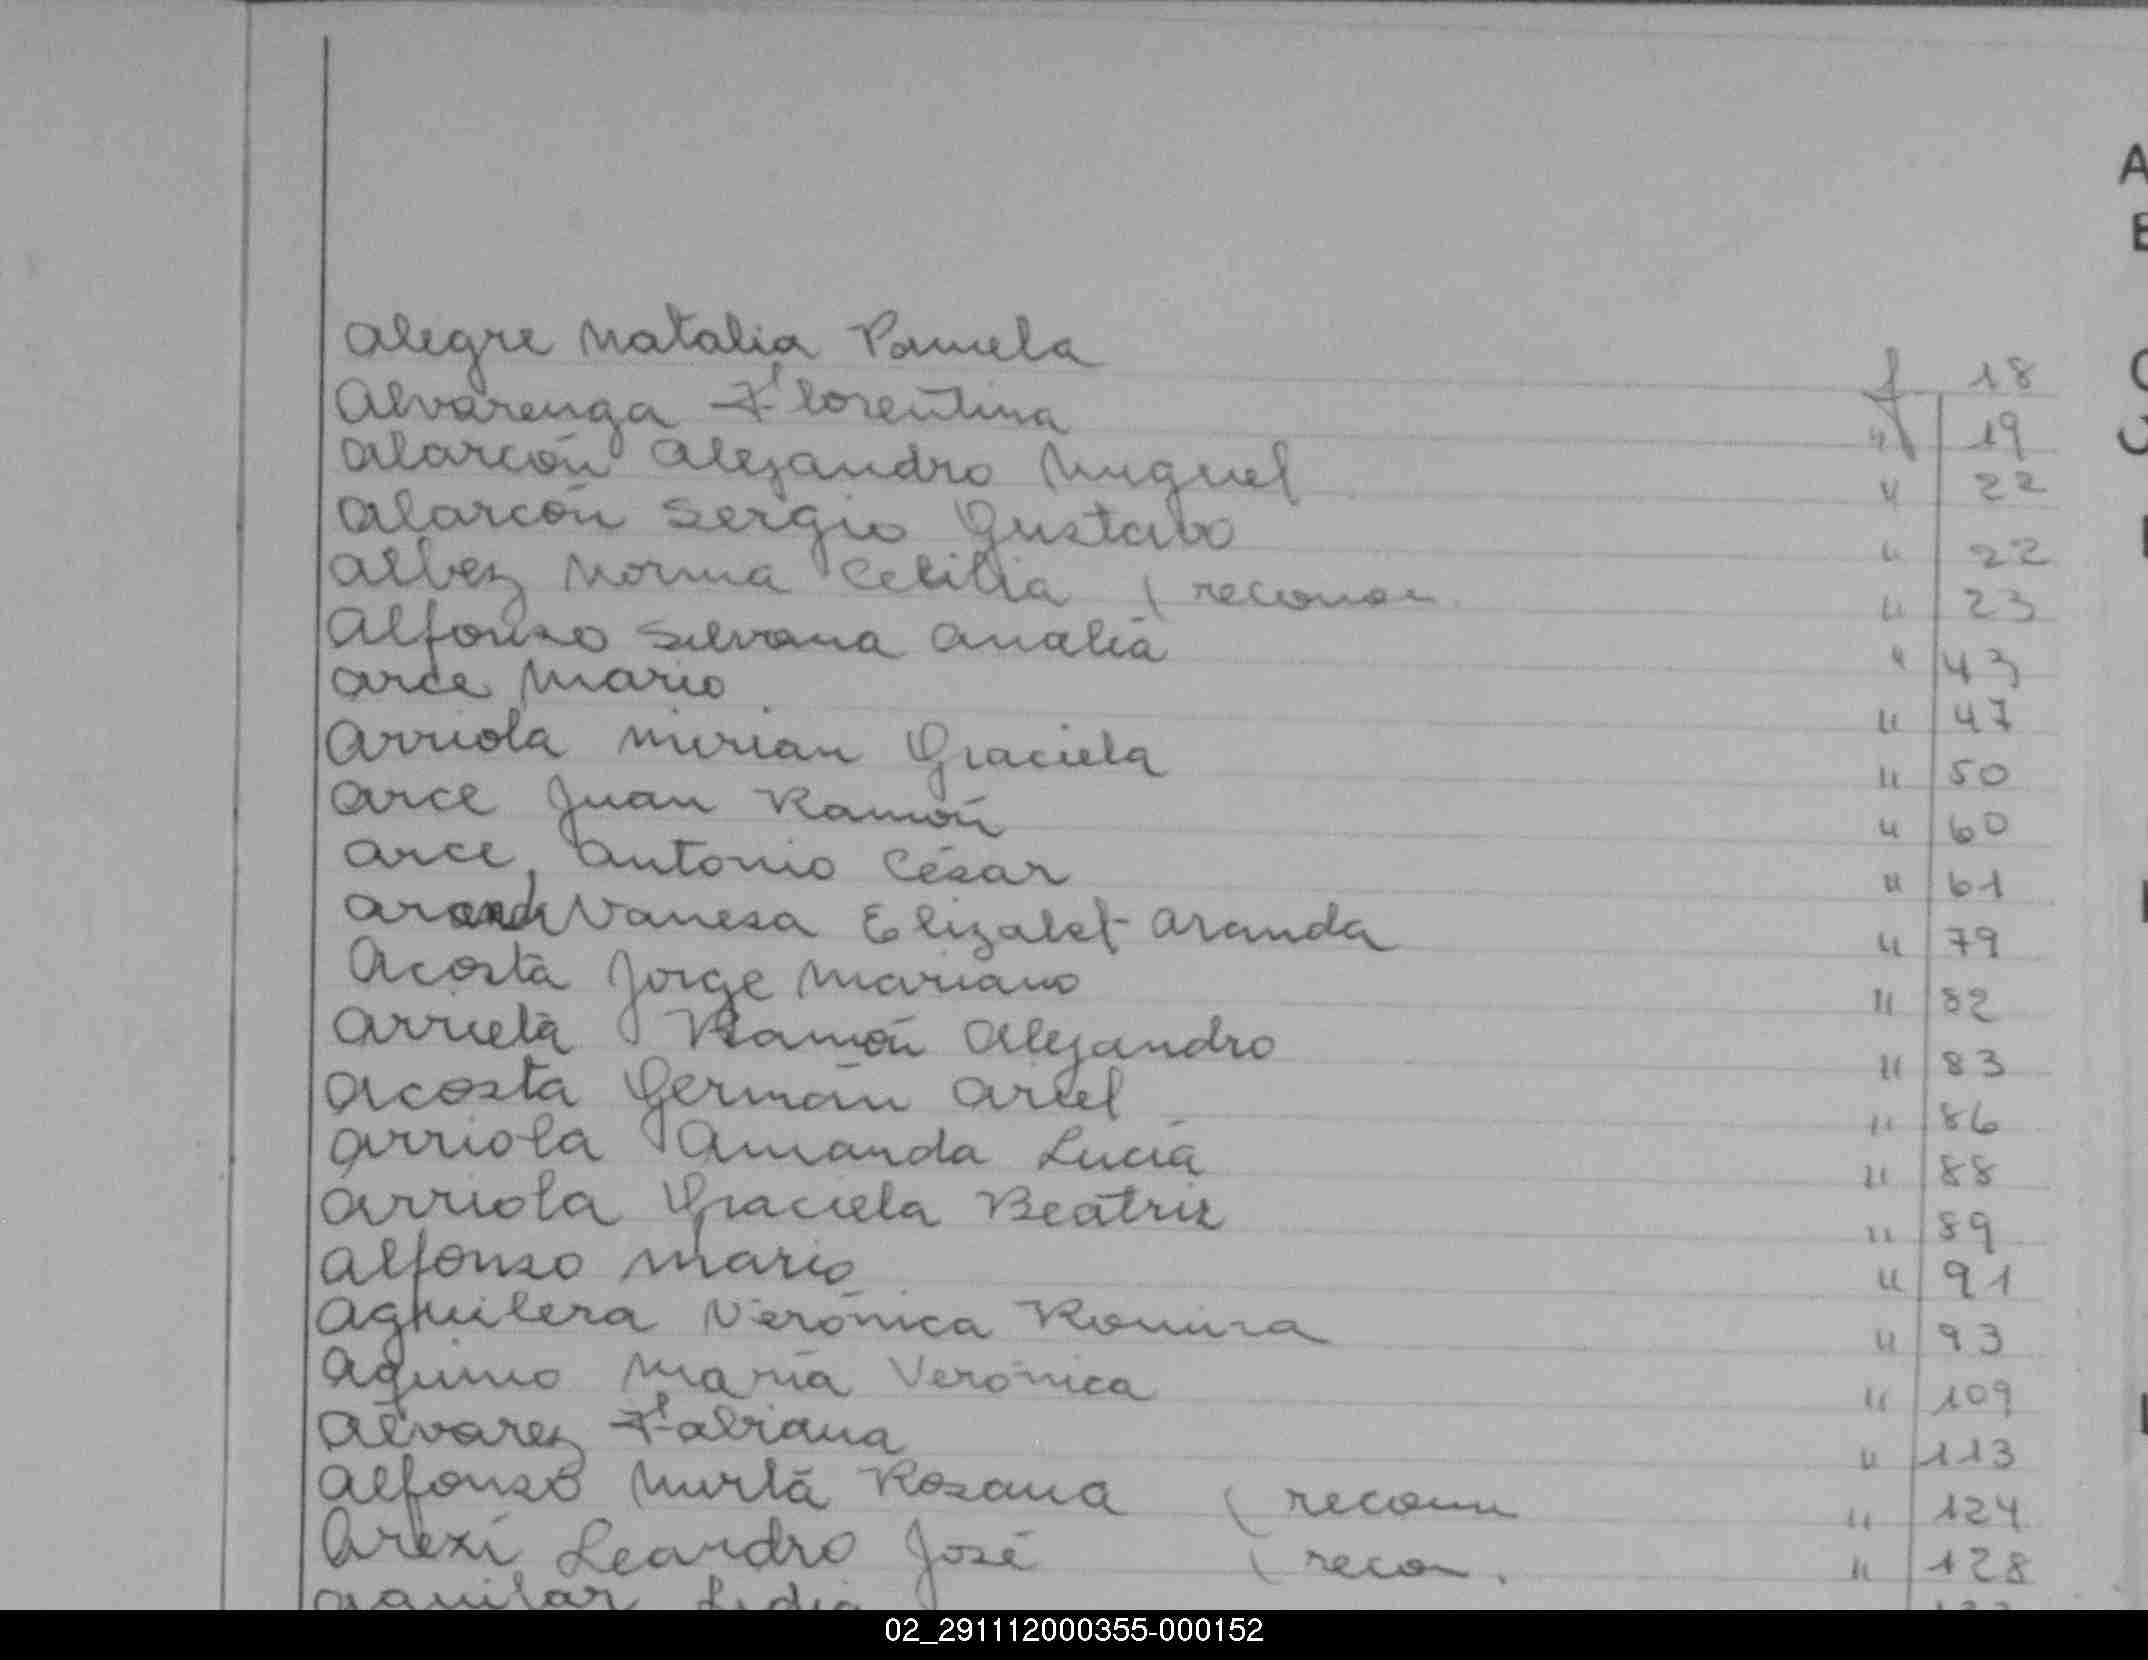 A
B
Alegre Natalia Pamela f 18
Alvarenga Florentina " 19
Alarcón Alejandro Miguel " 22
Alarcón Sergio Gustavo " 22
Albez Norma Cecilia ( reconoc. " 23
Alfonso Silvana Analía " 43
Arce Mario " 47
Arriola Mirian Graciela " 50
Arce Juan Ramón " 60
Arce, Antonio César " 61
Vanesa Elizabet Aranda " 79
Acosta Jorge Mariano " 82
Arrieta Ramón Alejandro " 83
Acosta Germán Ariel " 86
Arriola Amanda Lucía " 88
Arriola Graciela Beatriz " 89
Alfonso Mario " 91
Aguilera Verónica Romina " 93
Aquino María Verónica " 109
Alvarez Fabiana " 113
Alfonso Mirta Rosana ( reconn " 124
Arexi Leandro José ( recon. " 128
Aguilar Lidia
02_291112000355-000152